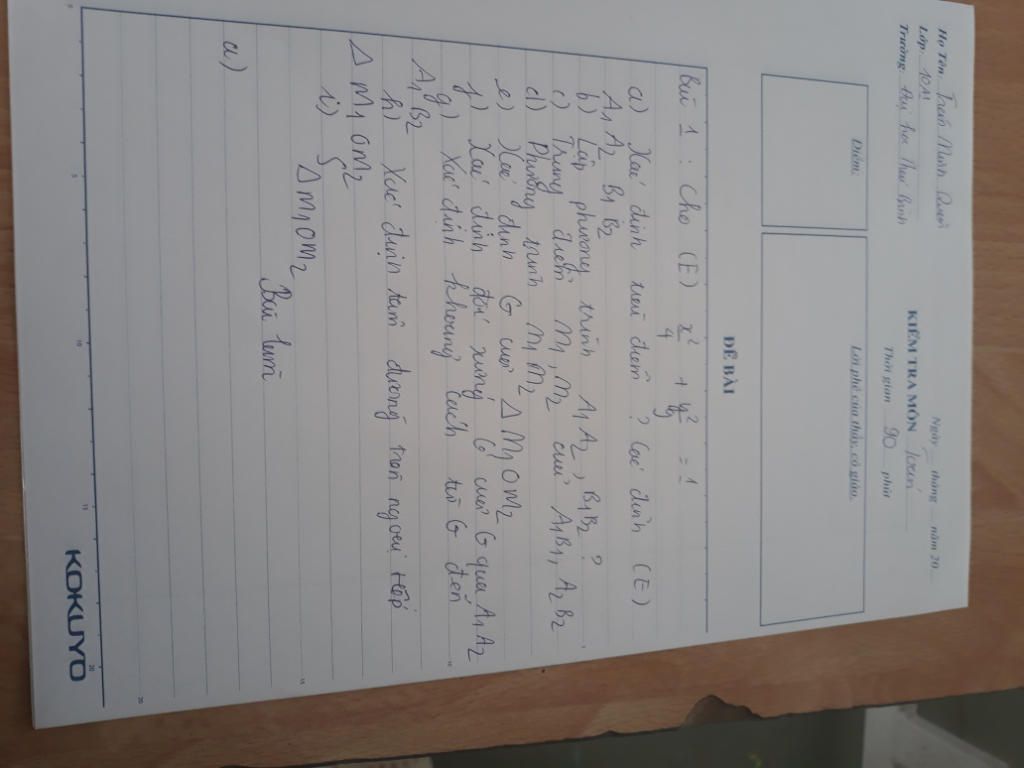 Họ Tên: Trần Minh
Lớp: 10A1
Trường:
Ngày tháng năm 20
KIỂM TRA MÔN Toán
Thời gian 90 phút
Điểm:
Lời phê của thầy, cô giáo
ĐỀ BÀI
Bài 1 : Cho (E) x²/4 + y²/9 = 1
a) Xác định tiêu điểm ? Các đỉnh (E)
A1 A2 B1 B2
b) Lập phương trình A1A2, B1B2 ?
c) Trung điểm M1, M2 của A1B1, A2B2
d) Phương trình M1M2
e) Xác định G của Δ M1OM2
f) Xác định đối xứng G' của G qua A1A2
g) Xác định khoảng cách từ G đến
A1B2
h) Xác định tâm đường tròn ngoại tiếp
Δ M1OM2
i) S ΔM1OM2
Bài làm
a.)
KOKUYO
5
10
15
20